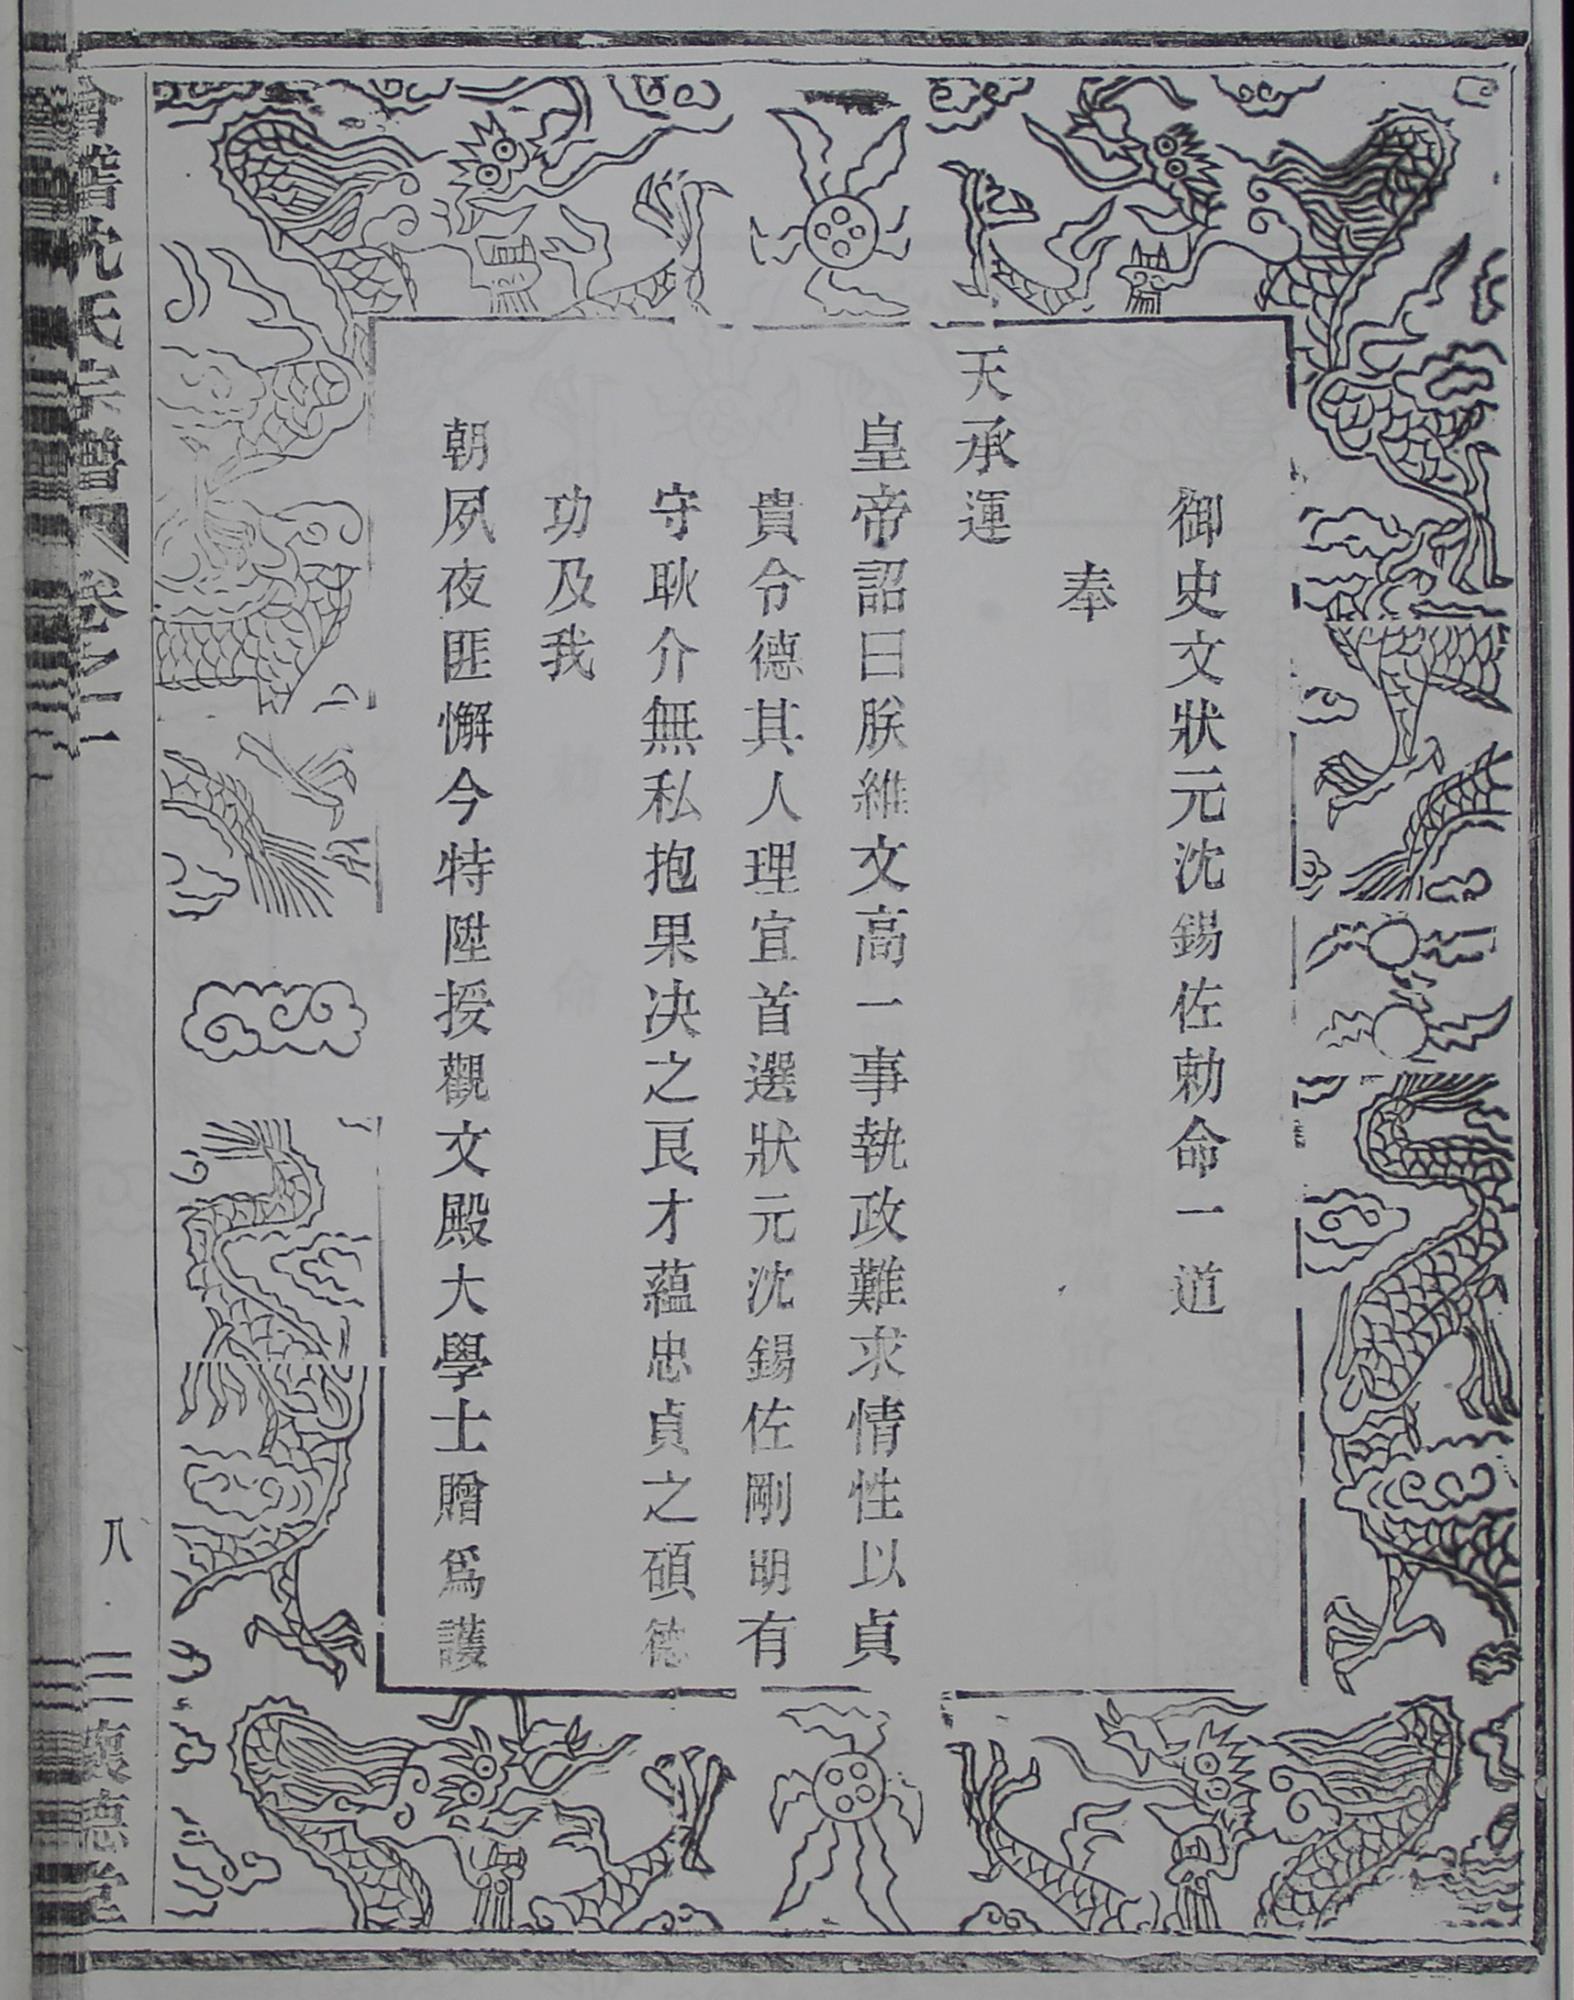 御史文狀元沈錫佐勅命一道
奉
天承運
皇帝詔曰朕維文高一事執政難求情性以貞
貴令德其人理宜首選狀元沈錫佐剛明有
守耿介無私抱果決之良才蘊忠貞之碩德
功及我
朝夙夜匪懈今特陞授觀文殿大學士贈爲護
沈氏宗譜 卷之一
八
懷德堂